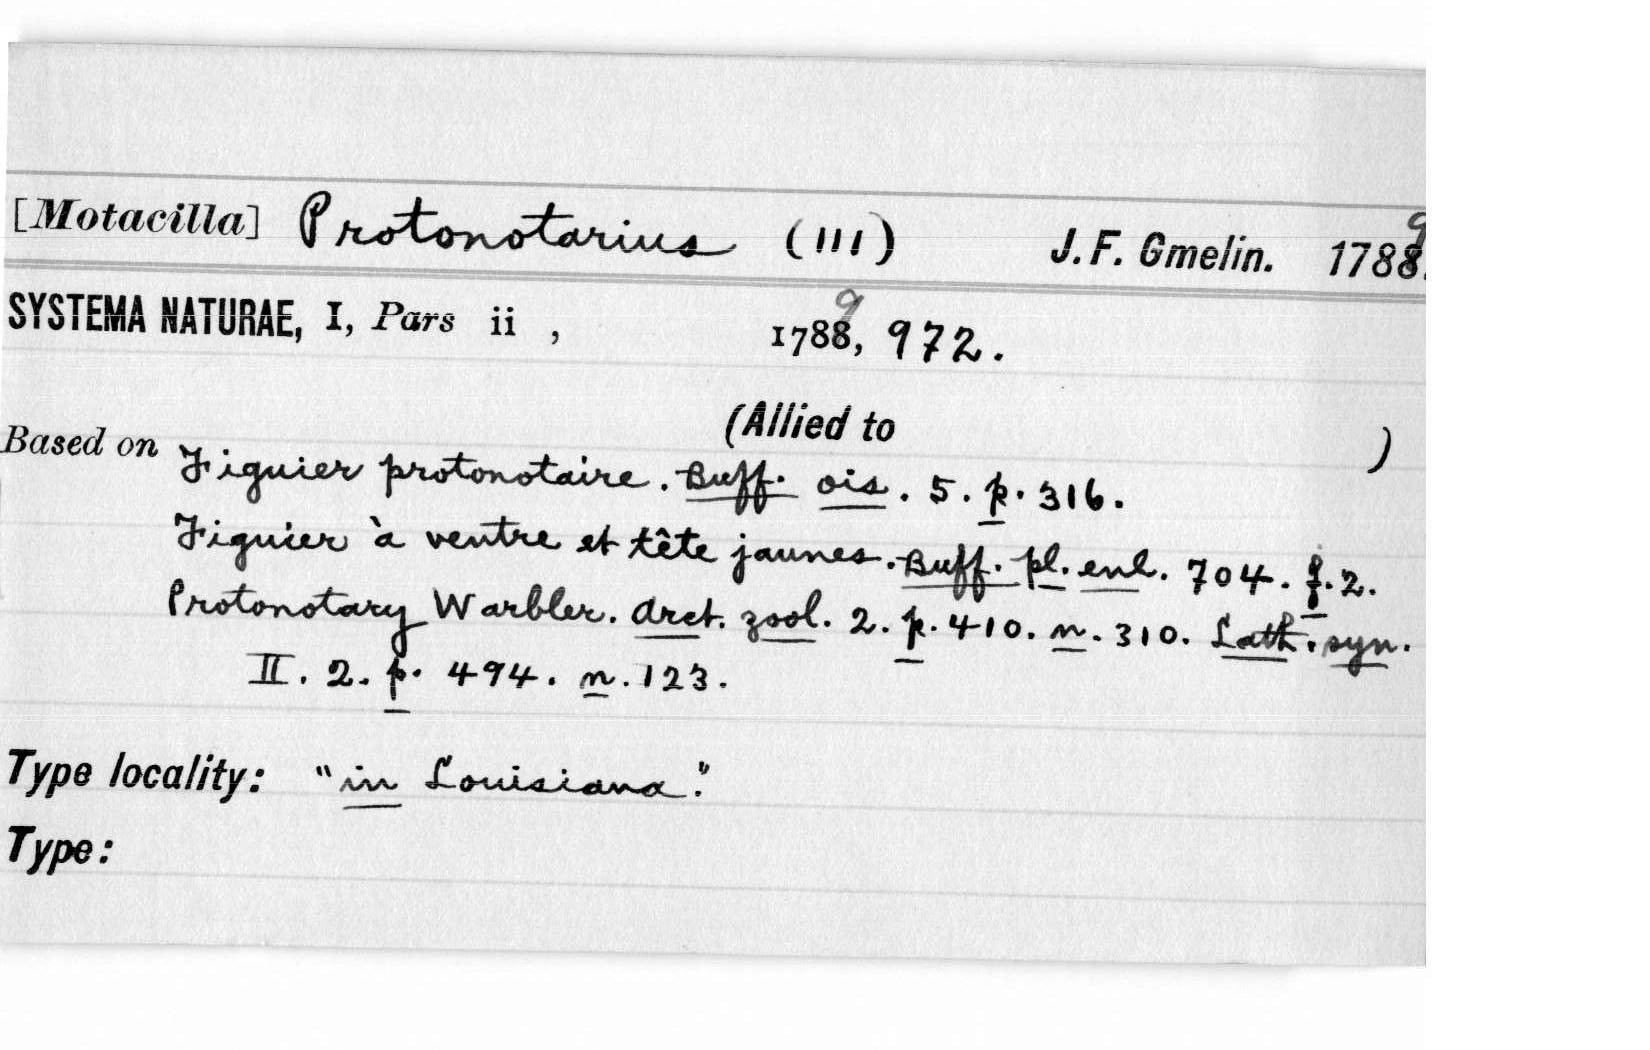 [Motacilla] Protonotarius (111) J. F. Gmelin. 1788. 9
SYSTEMA NATURAE, I, Pars ii , 1788, 9 972.
(Allied to )
Based on Figuier protonotaire. Buff. ois. 5. p. 316.
Figuier à ventre et tête jaunes. Buff. pl. enl. 704. f. 2.
Protonotary Warbler. Arct. zool. 2. p. 410. n. 310. Lath. syn.
II. 2. p. 494. n. 123.
Type locality: "in Louisiana".
Type: